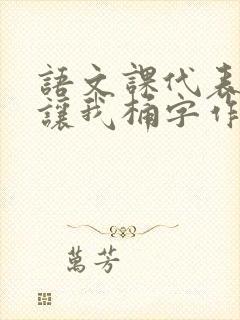 語文課代表
讓我桶字作
萬芳